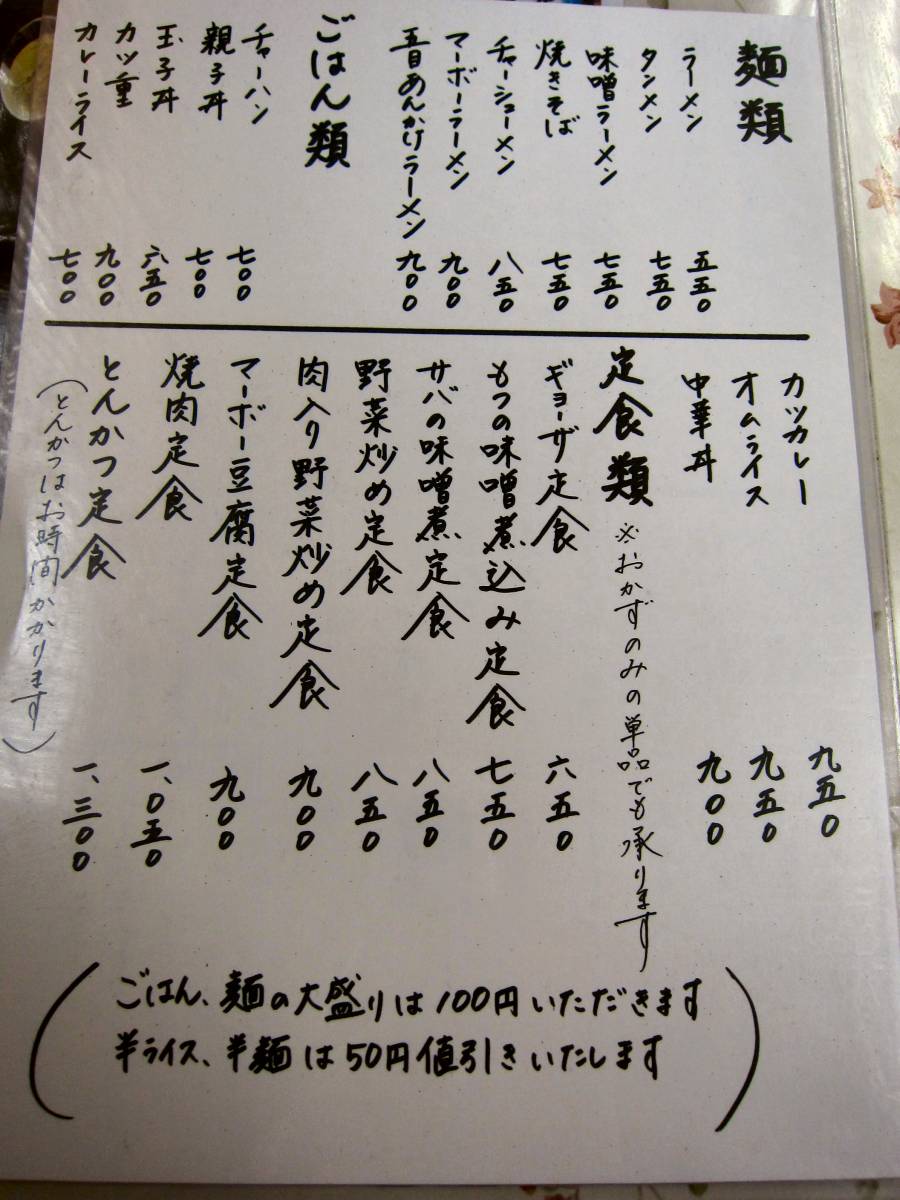 麺類
ラーメン 五五〇
タンメン 七五〇
味噌ラーメン 七五〇
焼きそば 七五〇
チャーシューメン 八五〇
マーボーラーメン 九〇〇
五目あんかけラーメン 九〇〇
ごはん類
チャーハン 七〇〇
親子丼 七〇〇
玉子丼 六五〇
カツ重 九〇〇
カレーライス 七〇〇
カツカレー 九五〇
オムライス 九五〇
中華丼 九〇〇
定食類 ※おかずのみの単品でも承ります
ギョーザ定食 六五〇
もつの味噌煮込み定食 七五〇
サバの味噌煮定食 八五〇
野菜炒め定食 八五〇
肉入り野菜炒め定食 九〇〇
マーボー豆腐定食 九〇〇
焼肉定食 一、〇五〇
とんかつ定食 一、三〇〇
(とんかつはお時間かかります)
(ごはん、麺の大盛りは100円いただきます
半ライス、半麺は50円値引きいたします)